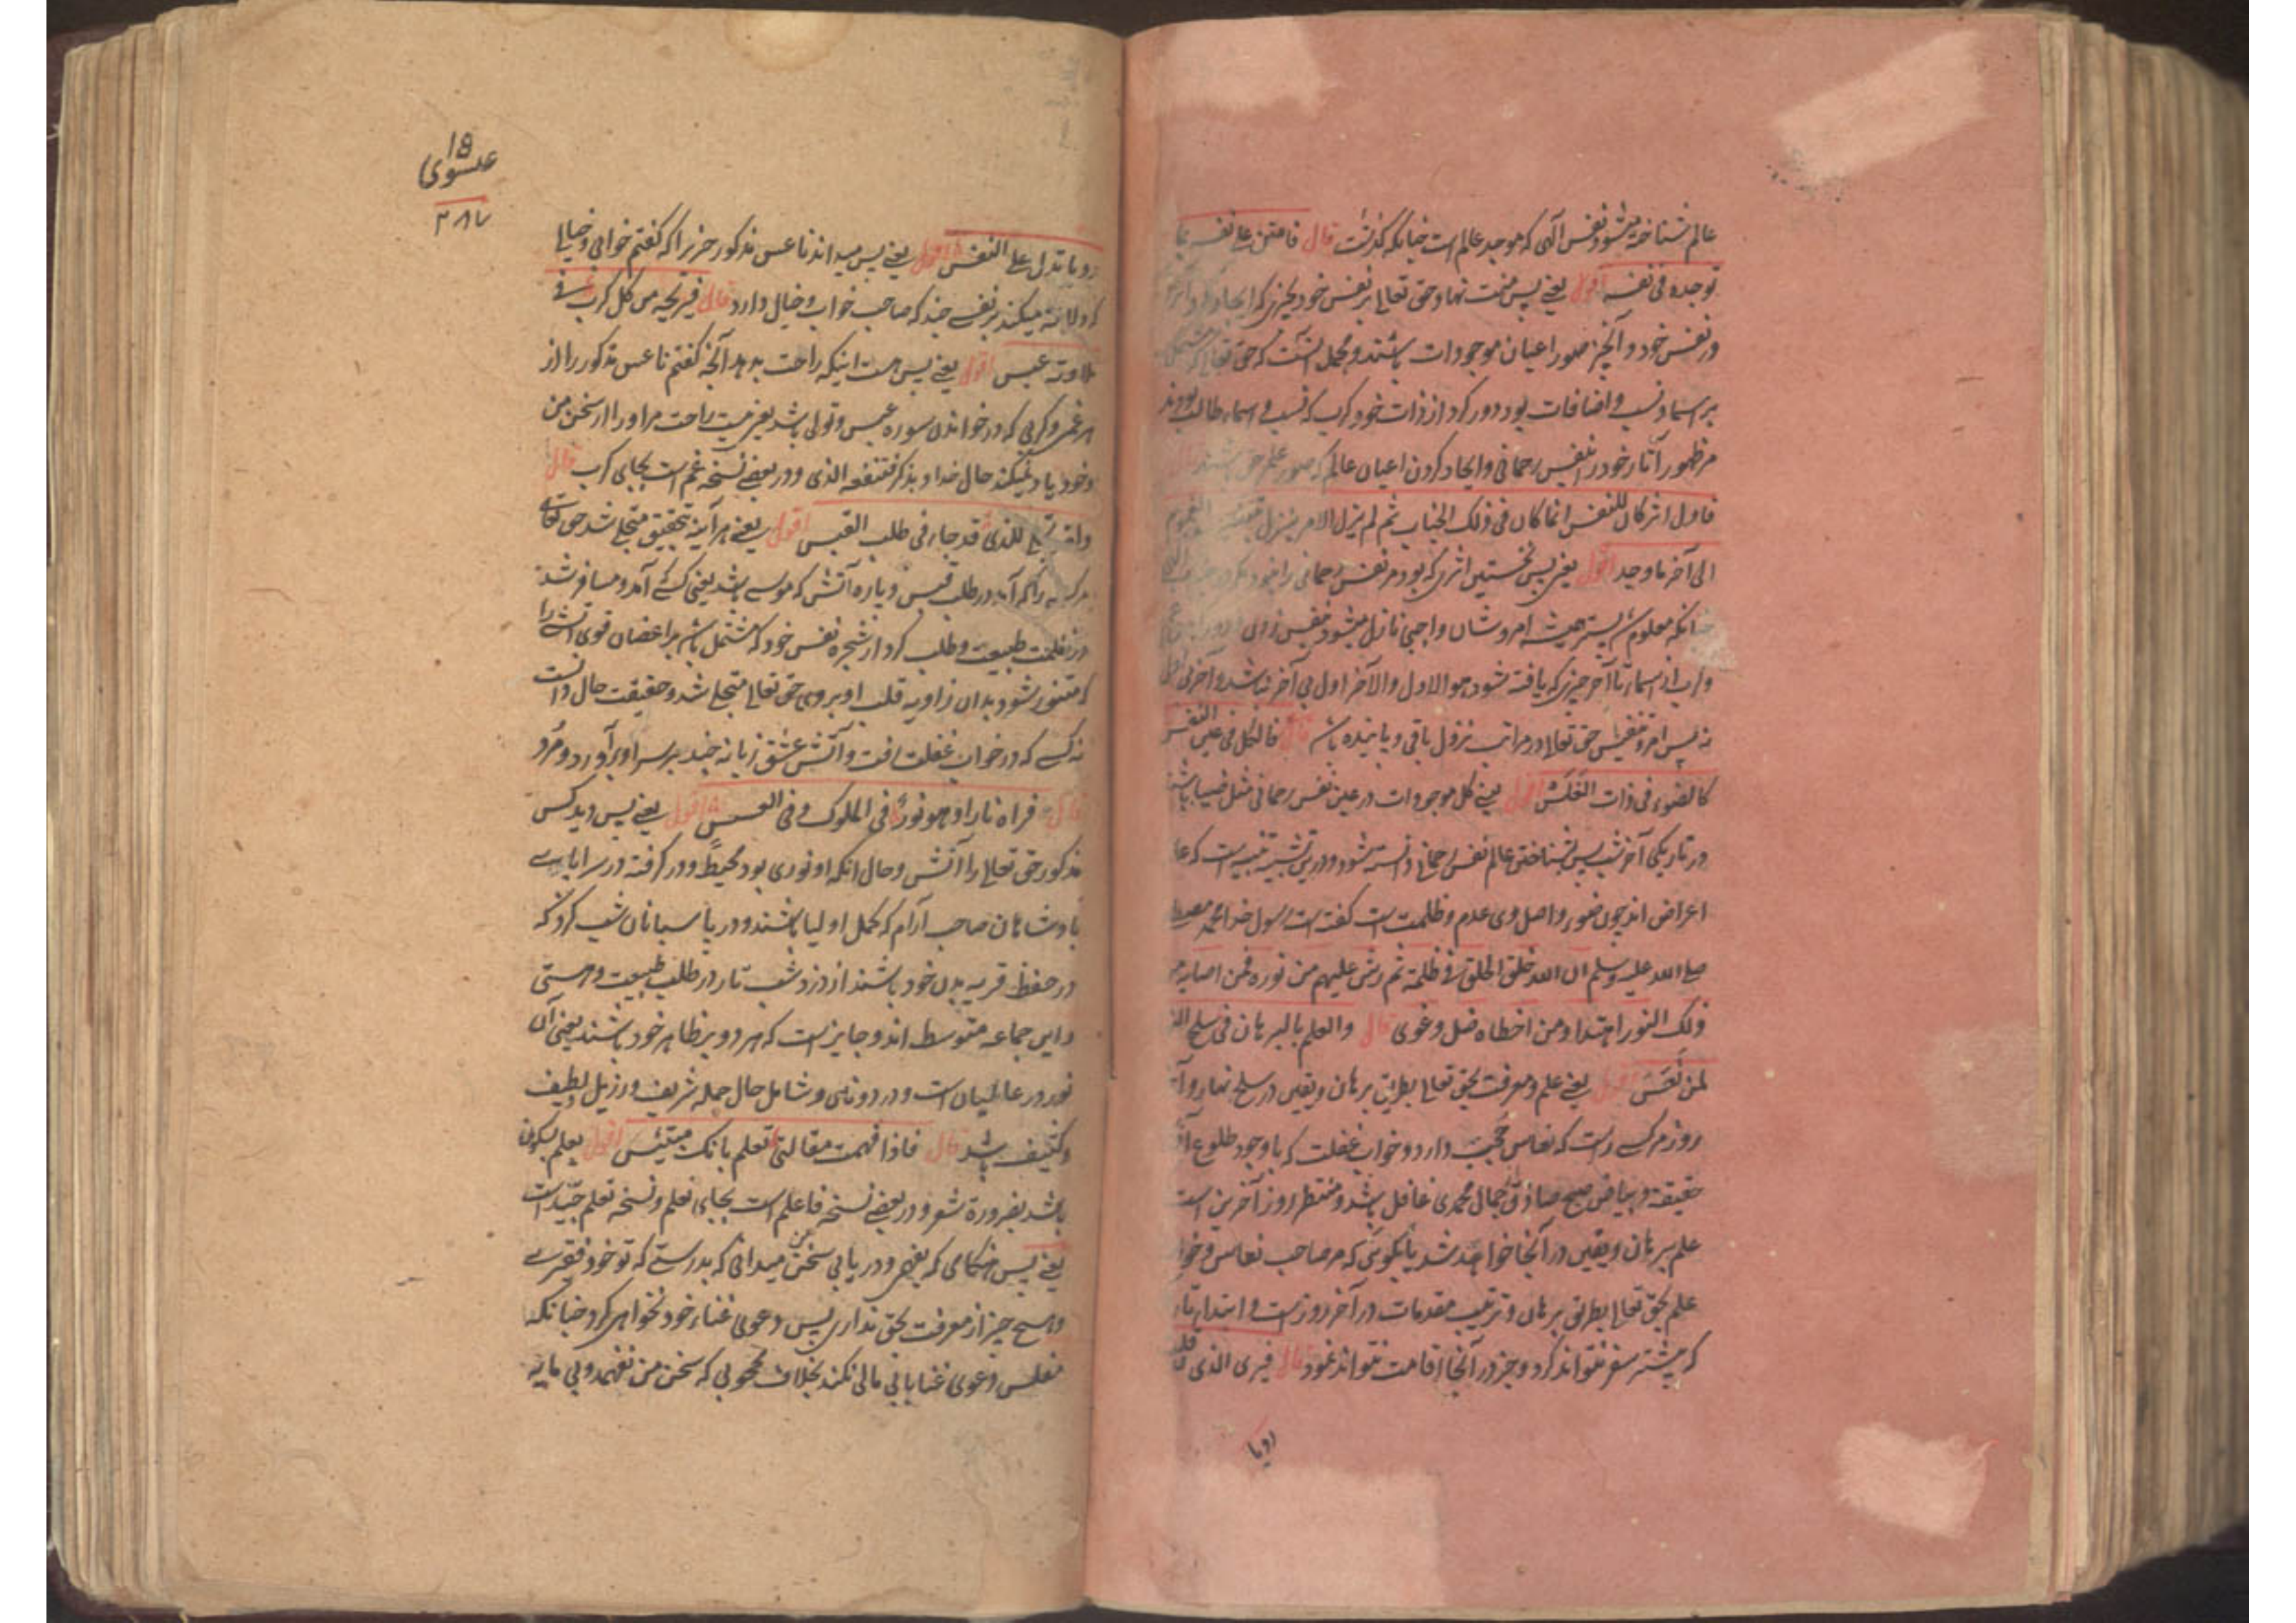 عالم شناخته میشود نفس آلهی که موجد عالم است چنانکه گذشت قال فامتن علی نفسه بما
توجده فی نفسه اقول یعنی پس منت نهاد حق تعالی بر نفس خود بچیزی که ایجاد کرد آنرا
در نفس خود و آنچیز صور اعیان موجودات باشند و مجمل آنست که حق تعالی که مشتمل
بر اسماء و نسب و اضافات بود دور کرد از ذات خود کرب که نسب و اسماء طالب بودند
مر ظهور آثار خود در نفس رحمانی و ایجاد کردن اعیان عالم که صور علم حق باشند قال
فاول اثر کان للنفس انما کان فی ذلک الجناب ثم لم یزل الامر ینزل بتنفیس الغموم
الی آخر ما وجد اقول یعنی پس نخستین اثری که بود مر نفس رحمانی را
چنانکه معلوم شد پستر همیشه امر و شان واجبی نازل میشود بنفس زدن
از اسماء تا آخر چیزی که یافته شود هو الاول والآخر اول بی آخر نباشد و آخر بی اول
نه پس امر و تنفیس حق تعالی در مراتب نزول باقی و پاینده باشد قال فالکل فی عین النفس
کالضوء فی ذات الغلس اقول یعنی کل موجودات در عین نفس رحمانی مثل ضیا باشند
در تاریکی آخر شب پس بشناختن عالم نفس رحمانی دانسته شود و درین تشبیه تنبیه است که
اعراض اند چون ضوء و اصل وی عدم و ظلمت است گفته است رسول خدا محمد مصطفی
صلی الله علیه وسلم ان الله خلق الخلق فی ظلمة ثم رش علیهم من نوره فمن اصابه من
ذلک النور اهتدا و من اخطاه ضل و غوی قال والعلم بالبرهان فی سلخ النهار
لمن نعس اقول یعنی علم و معرفت بحق تعالی بطریق برهان و یقین در سلخ نهار و آخر
روز مر کسی راست که نعاس حجب دارد و خواب غفلت که با وجود طلوع آفتاب
حقیقة و بیاض صبح صادق جمال محمدی غافل باشد و منتظر روز آخرین است
علم برهان و یقین در آنجا خواهد شد یا بگوئی که مر صاحب نعاس و خواب
علم بحق تعالی بطریق برهان و ترتیب مقدمات در آخر روز است و ابتداء تار
که پیشتر سفر نتواند کرد و جز در آنجا اقامت نتواند نمود قال فیری الذی قد قلته
رویا
18
عیسوی
۲۸۷
رویا تدل علی النفس اقول یعنی پس میداند ناعس مذکور چیزیرا که گفتم خوابی و خیالی
که دلالة میکند بر نفسی چند که صاحب خواب و خیال دارد قال فیریحه من کل کرب فی
تلاوته عبس اقول یعنی پس هست اینکه راحت بدهد آنچه گفتم ناعس مذکور را از
هر غمی و کربی که در خواندن سوره عبس و تولی باشد یعنی نیست راحت مر او را از سخن من
و خود یاد نمیکند حال خدا و بذکر فتنفعه الذکری و در بعضی نسخه غم است بجای کرب قال
ولقد تجلی للذی قد جاء فی طلب القبس اقول یعنی هر آینه بتحقیق متجلی شد حق تعالی
مر کسی را که آمد در طلب قبس و پاره آتش که موسی باشد یعنی کسی آمد و مسافر شد
در ظلمت طبیعت و طلب کرد از شجره نفس خود که مشتمل باشد بر اغصان قوی آتشی را
که متنور شود بدان زاویه قلب او بر وی حق تعالی متجلی شد و حقیقت حال دانست
نه کسی که در خواب غفلت رفت و آتش عشق زبانه چند بر سر او برآورد و مرد
قال فراه نارا و هو نور فی الملوک و فی العسس اقول یعنی پس دید کس
مذکور حق تعالی را آتش و حال آنکه او نوری بود محیط و در گرفته در سراپای
پادشاهان صاحب آرام که کمل اولیا باشند و در پاسبانان شب گرد که
در حفظ قریه بدن خود باشند از دزد شب تار در طلب طبیعت و هستی
و این جماعه متوسط اند و جایز است که هر دو بر ظاهر خود باشند یعنی آن
نور در عالمیان است و در دونان و شامل حال جمله شریف و رذیل و لطیف
و کثیف باشد قال فاذا فهمت مقالتی تعلم بانک مبتئس اقول یعلم بسکون
باشد بضرورة شعر و در بعضی نسخه فاعلم است بجای تعلم و نسخه تعلم جید است
یعنی پس هنگامی که بفهمی و دریابی سخن من میدانی که بدرستی که تو خود فقیری
و هیچ چیز از معرفت بحق نداری پس دعوی غناء خود نخواهی کرد چنانکه
مفلس دعوی غنا با بی مالی نکند بخلاف محجوبی که سخن من نفهمد و بی مایه